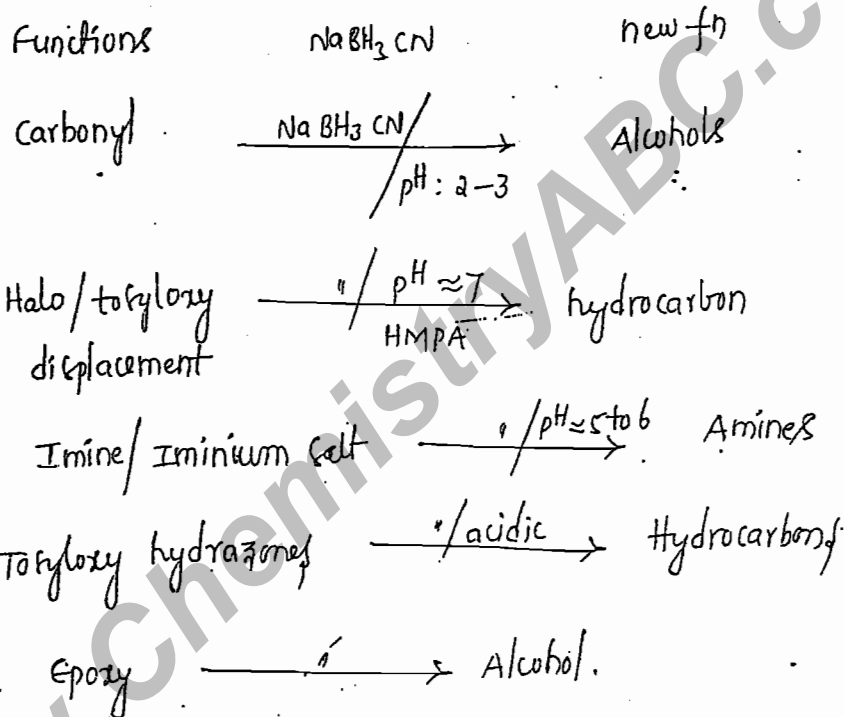 Functions NaBH3CN new fn
Carbonyl NaBH3CN / pH: 2-3 Alcohols
Halo/tosyloxy displacement " / pH ≈ 7 HMPA hydrocarbon
Imine/Iminium salt " / pH ≈ 5 to 6 Amines
Tosyloxy hydrazones " / acidic Hydrocarbons
Epoxy " Alcohol.
ChemistryABC.c